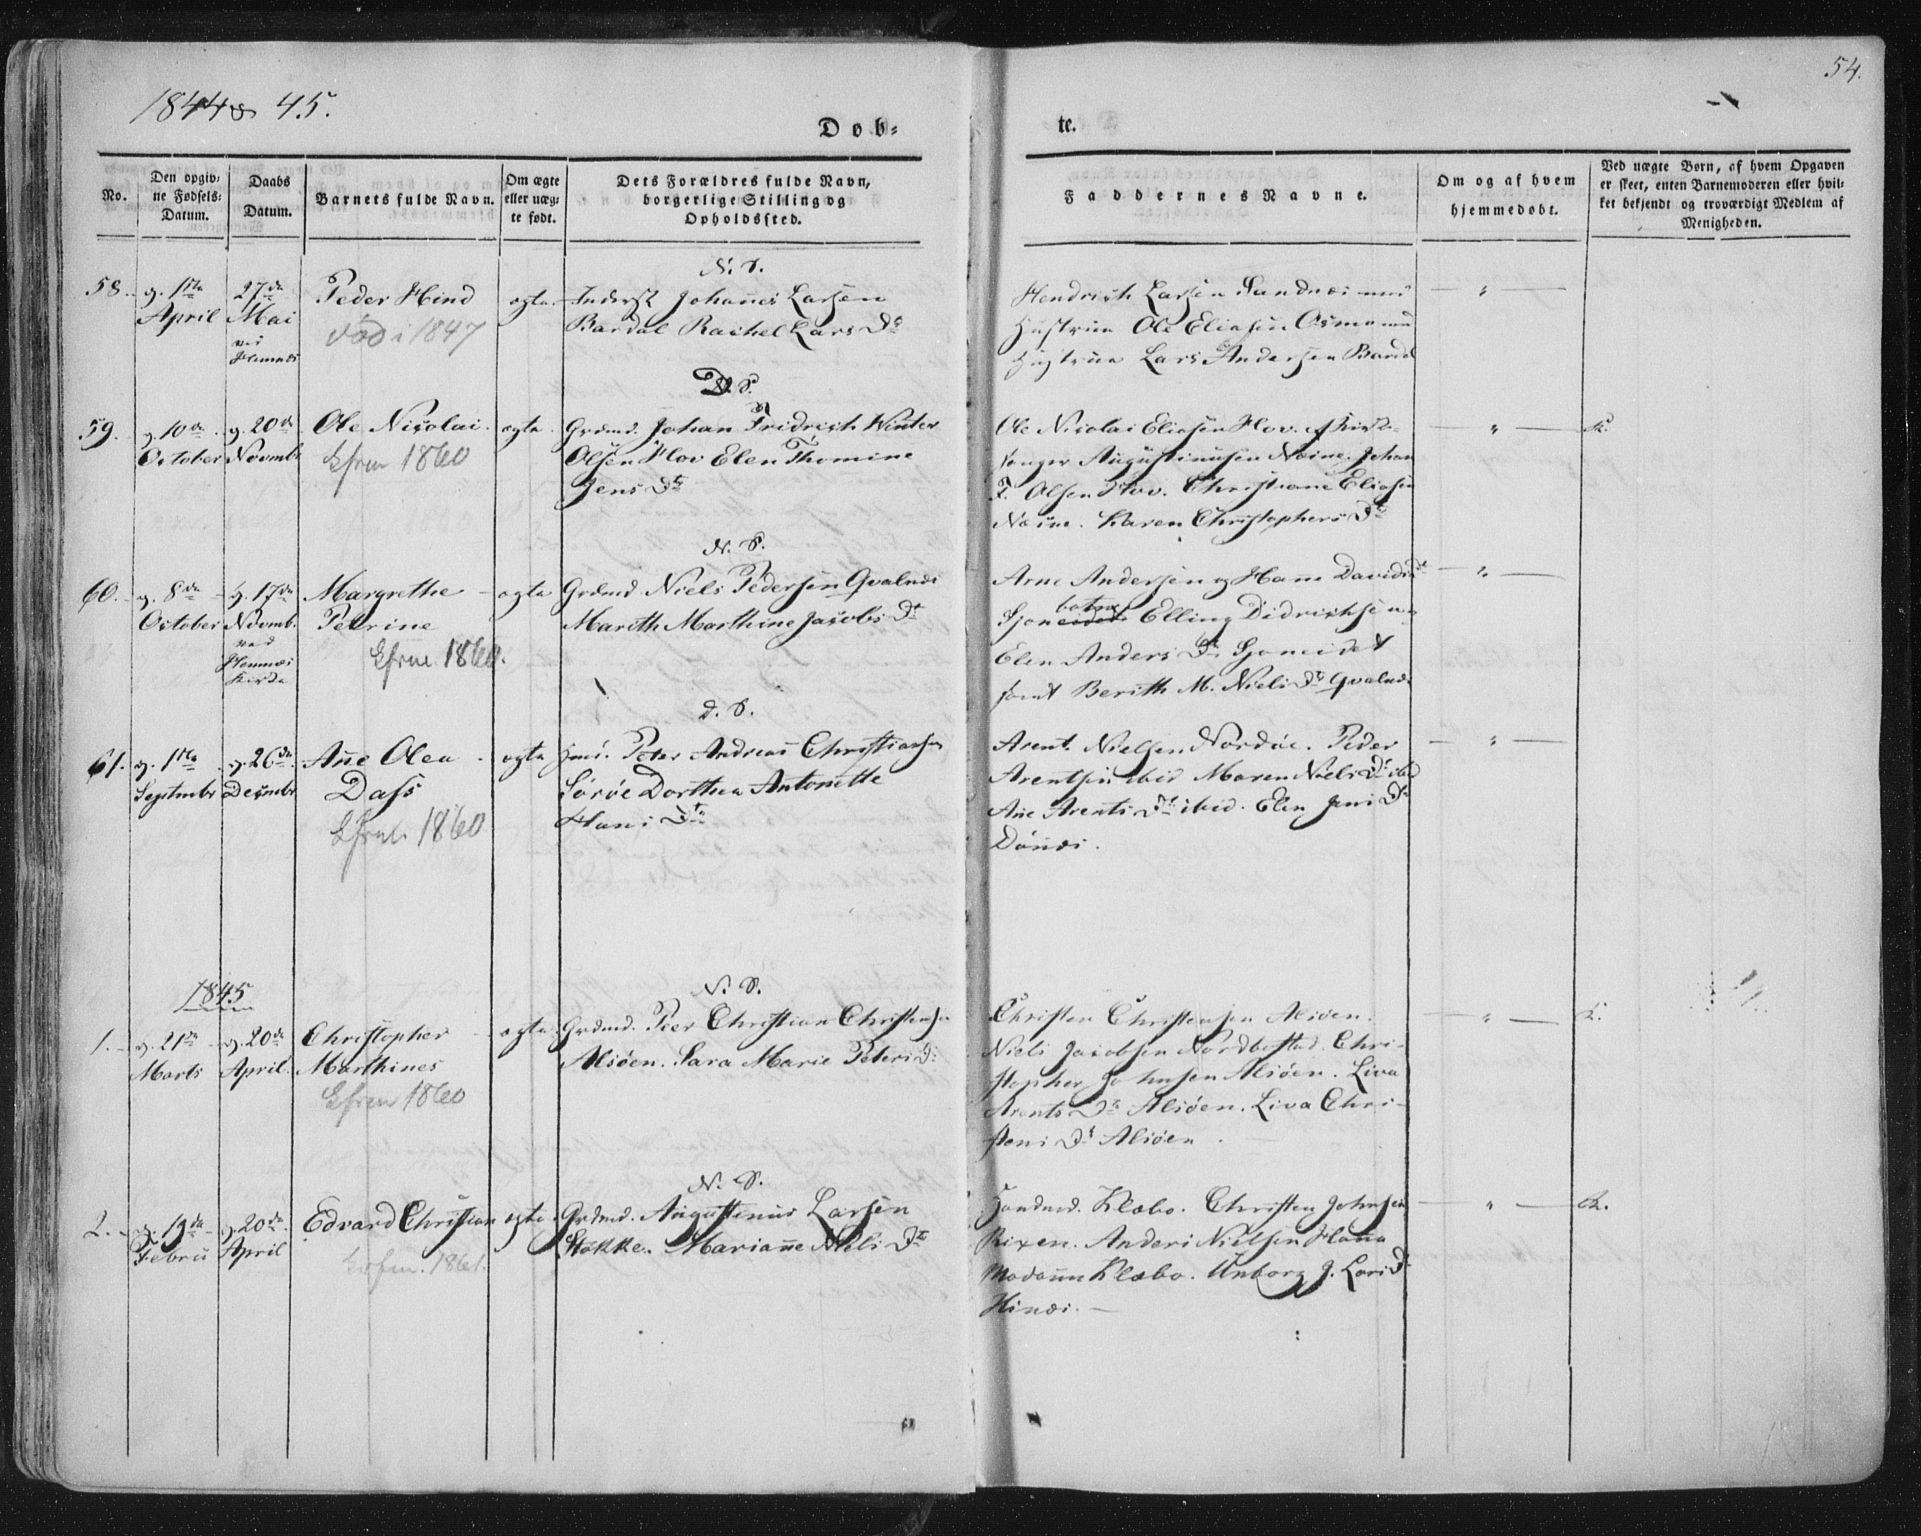 1844 & 45.
54.
Døb-
te.
No.
Den opgiv-
ne Fødsels-
Datum.
Daabs
Datum.
Barnets fulde Navn.
Om ægte
eller uæg-
te født.
Dets Forældres fulde Navn,
borgerlige Stilling og
Opholdssted.
Faddernes Navne.
Om og af hvem
hjemmedøbt.
Ved uægte Børn, af hvem Opgaven
er skeet, enten Barnemoderen eller hvil-
ket bekjendt og troværdigt Medlem af
Menigheden.
N. S.
58. 1ste April
27de Mai ved Hemnæs
Peder Hind
død i 1847
ægte
Inderst Johannes Larsen
Bardal Rachel Lars Dr
Hendrich Larsen Sandnæs med
Hustrue Ole Eliasen Osmo med
Hustrue Lars Andersen Bardal
D. S.
59. 10de October
20de Novmbr
Ole Nicolai
Cfrm 1860
ægte
Grdmd. Johan Fridrich Winter
Olsen Hov Elen Thomine
Jens Dtr
Ole Nicolai Eliasen Hov. Kirke-
sanger Augustinusen Næine. Johan
F. Olsen Hov. Christiane Eliasen
Næine. Karen Christophers Dr
N. S.
60. 8de October
17de Novmb. ved Hemnæs Kirke
Margrethe
Petrine
Cfrm 1860.
ægte
Grdmd Niels Pedersen Qvalnæs
Mareth Marthine Jacobs Dr
Arne Andersen og Hans Davids Dr
botn
Sjoneidet Elling Didrichsen
Elen Anders Dr Sjoneidet
samt Berith M. Niels Dr Qvalnæs
D. S.
61. 1ste Septmbr
26de Decmbr
Ane Olea
Dass
Cfrm 1860
ægte
Peter Andreas Christiansen
Sørøe Dorthea Antonette
Hans Dtr
Arent Nielsen Nordøe. Peder
Arentsen ibid Maren Niels Dr ibid
Ane Arents Dr ibid. Elen Jens Dr
Dønæs.
1845
N. S.
1. 21de Marts
20de April
Christopher
Marthines
Cfrm 1860
ægte
Grdmd. Peer Christian Christensen
Alsøen. Sara Marie Peters Dr
Christen Christensen Alsøen.
Niels Jacobsen Nordbostad. Chri-
stopher Johnsen Alsøen. Liva
Arents Dr Alsøen. Liva Chri-
stens Dr Alsøen.
N. S.
2. 19de Febru
20de April
Edvard Christian
Cofm. 1861.
ægte
Grdmd. Augustinus Larsen
Stokke. Mariane Niels Dr
Handmd. Klæbo. Christen Johnsen
Rixen. Anders Nielsen
Madam Klæbo. Unborg J. Lars Dr
Hinæs.